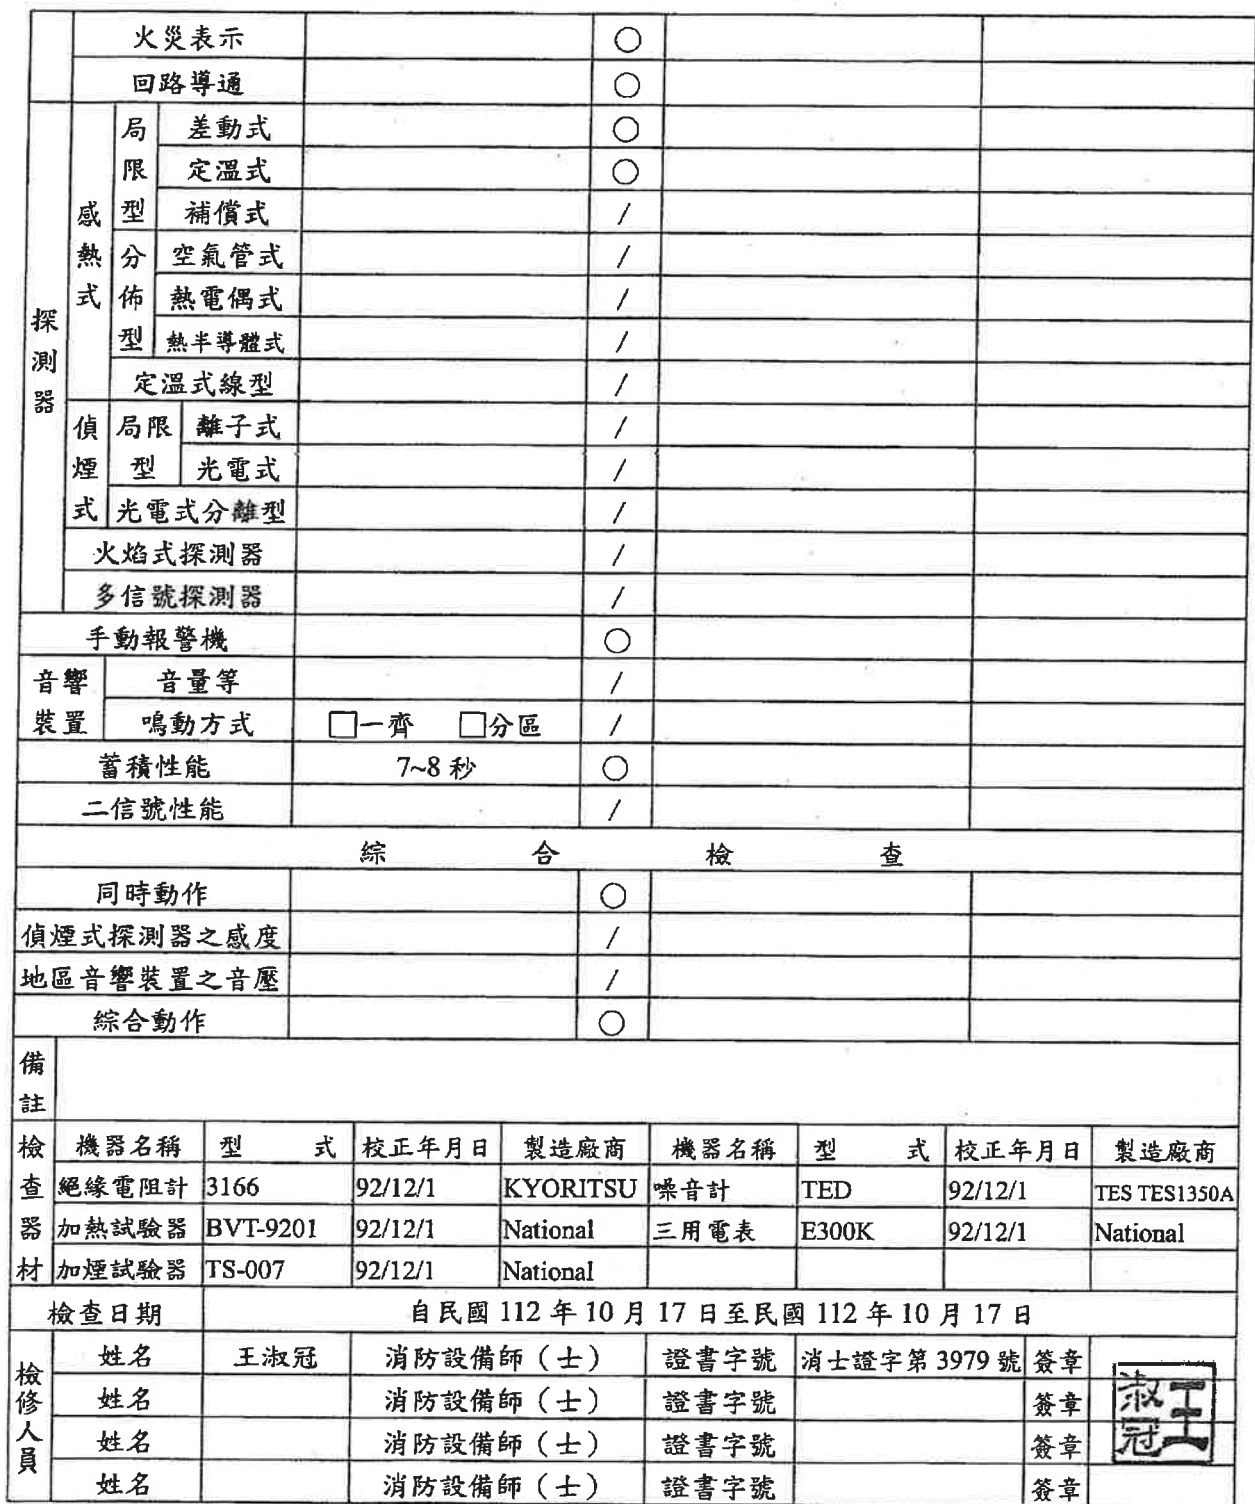 火災表示 ○
回路導通 ○
探測器 感熱式 局限型 差動式 ○
定溫式 ○
補償式 /
分佈型 空氣管式 /
熱電偶式 /
熱半導體式 /
定溫式線型 /
偵煙式 局限型 離子式 /
光電式 /
光電式分離型 /
火焰式探測器 /
多信號探測器 /
手動報警機 ○
音響裝置 音量等 /
鳴動方式 □一齊 □分區 /
蓄積性能 7~8 秒 ○
二信號性能 /
綜合檢查
同時動作 ○
偵煙式探測器之感度 /
地區音響裝置之音壓 /
綜合動作 ○
備註
檢查器材 機器名稱 型式 校正年月日 製造廠商 機器名稱 型式 校正年月日 製造廠商
絕緣電阻計 3166 92/12/1 KYORITSU 噪音計 TED 92/12/1 TES TES1350A
加熱試驗器 BVT-9201 92/12/1 National 三用電表 E300K 92/12/1 National
加煙試驗器 TS-007 92/12/1 National
檢查日期 自民國 112 年 10 月 17 日至民國 112 年 10 月 17 日
檢修人員 姓名 王淑冠 消防設備師（士） 證書字號 消士證字第 3979 號 簽章
姓名 消防設備師（士） 證書字號 簽章
姓名 消防設備師（士） 證書字號 簽章
姓名 消防設備師（士） 證書字號 簽章
王淑冠